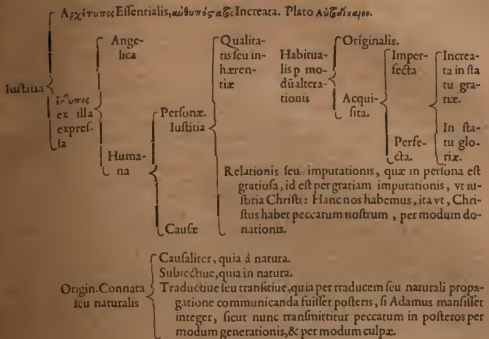 Ἀρχέτυπος Essentialis, αὐθυπόςατος Increata. Plato Αὐτοδίκαιον.
Iustitia
ex illa
expres-
sa
Ange-
lica
Huma-
na
Personæ.
Iustitia
Causæ
Qualita-
tis seu in-
hæren-
tiæ
Habitua-
lis p mo-
dũ altera-
tionis
Originalis.
Acqui-
sita.
Imper-
fecta
Perfe-
cta.
Increa-
ta in sta
tu gra-
tiæ.
In sta-
tu glo-
riæ.
Relationis seu imputationis, quæ in persona est
gratiosa, id est per gratiam imputationis, vt iu-
stitia Christi: Hanc nos habemus, ita vt, Chri-
stus habet peccatum nostrum, per modum do-
nationis.
Origin. Connata
seu naturalis
Causaliter, quia à natura.
Subiectiue, quia in natura.
Traductiue seu transitiue, quia per traducem seu naturali propa-
gatione communicanda fuisset posteris, si Adamus mansisset
integer, sicut nunc transmittitur peccatum in posteros per
modum generationis, & per modum culpæ.